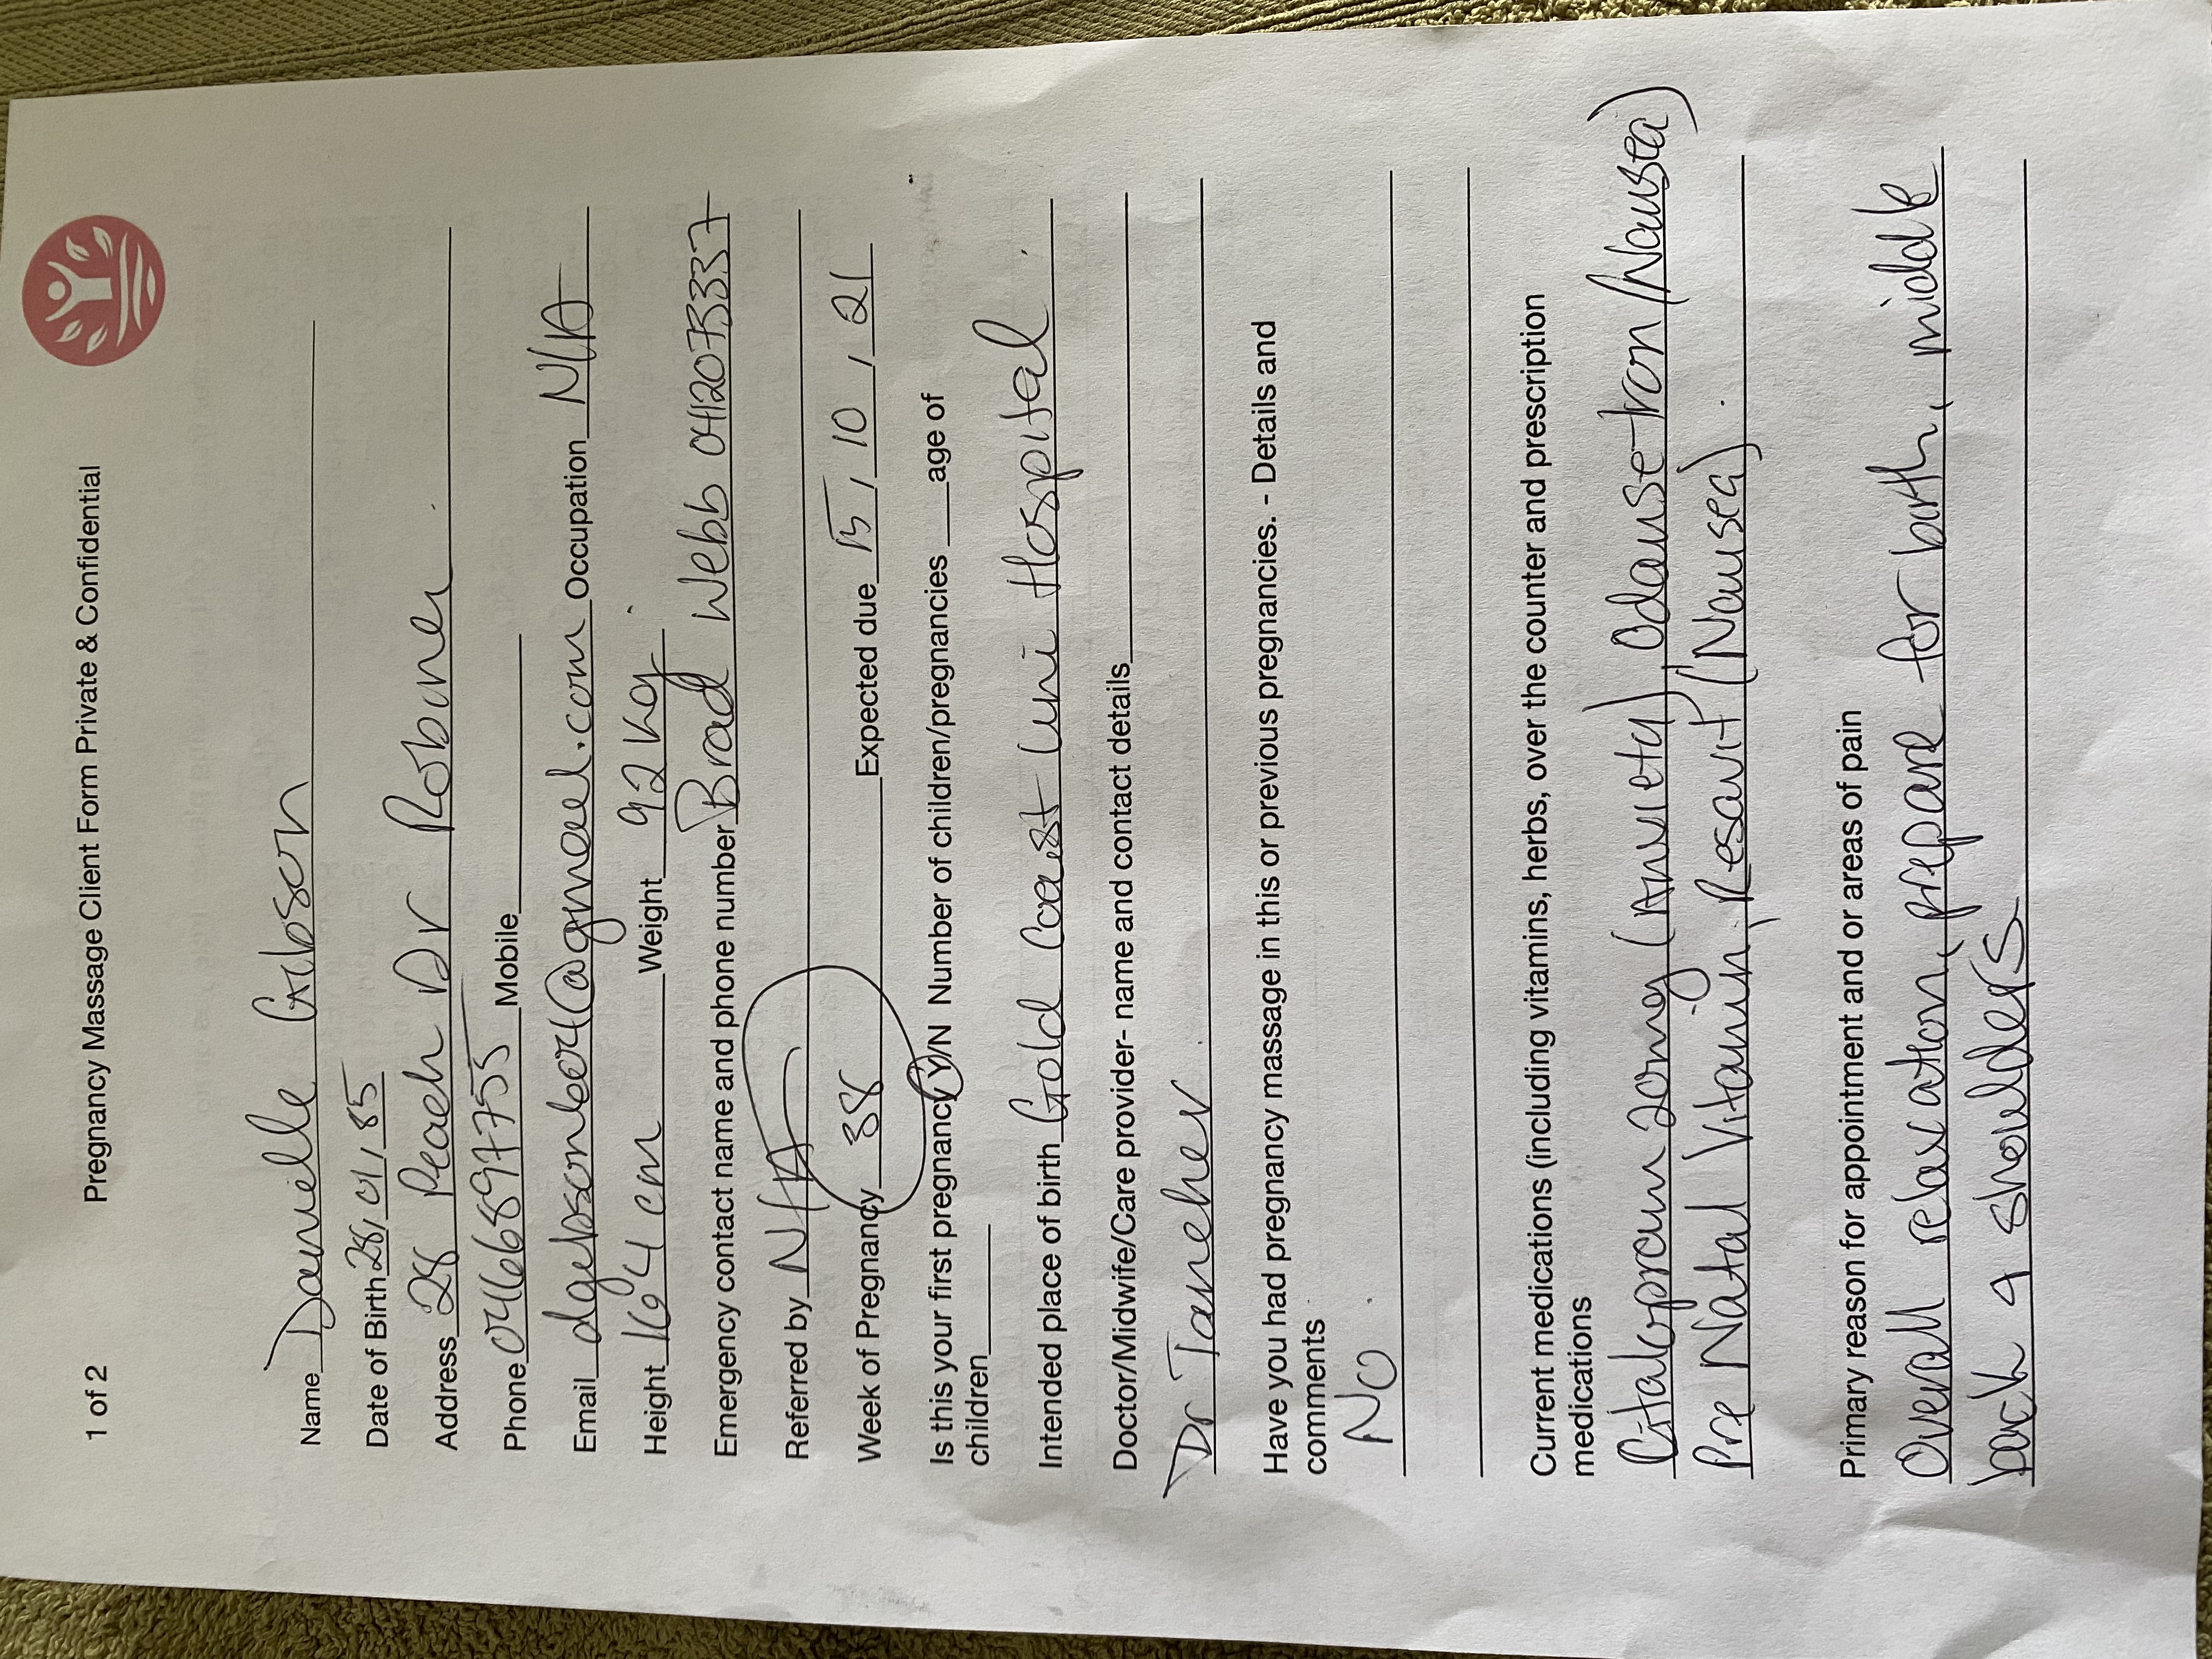 1 of 2 Pregnancy Massage Client Form Private & Confidential
Name Danielle Gibson
Date of Birth 28, 01, 85
Address 28 Peach Dr Robina.
Phone 0466897755 Mobile
Email @gmail.com Occupation N/A
Height 164 cm Weight 92 kg.
Emergency contact name and phone number Brad Webb
Referred by N/A
Week of Pregnancy 38 Expected due 15, 10, 21
Is this your first pregnancy Y/N Number of children/pregnancies age of
children
Intended place of birth Gold Coast Uni Hospital.
Doctor/Midwife/Care provider- name and contact details
Dr
Have you had pregnancy massage in this or previous pregnancies. - Details and
comments
NO.
Current medications (including vitamins, herbs, over the counter and prescription
medications
Citalopram 20mg (Anxiety) Odansetron (Nausea)
Pre Natal Vitamin, (Nausea).
Primary reason for appointment and or areas of pain
Overall relaxation, prepare for birth, middle
back & shoulders